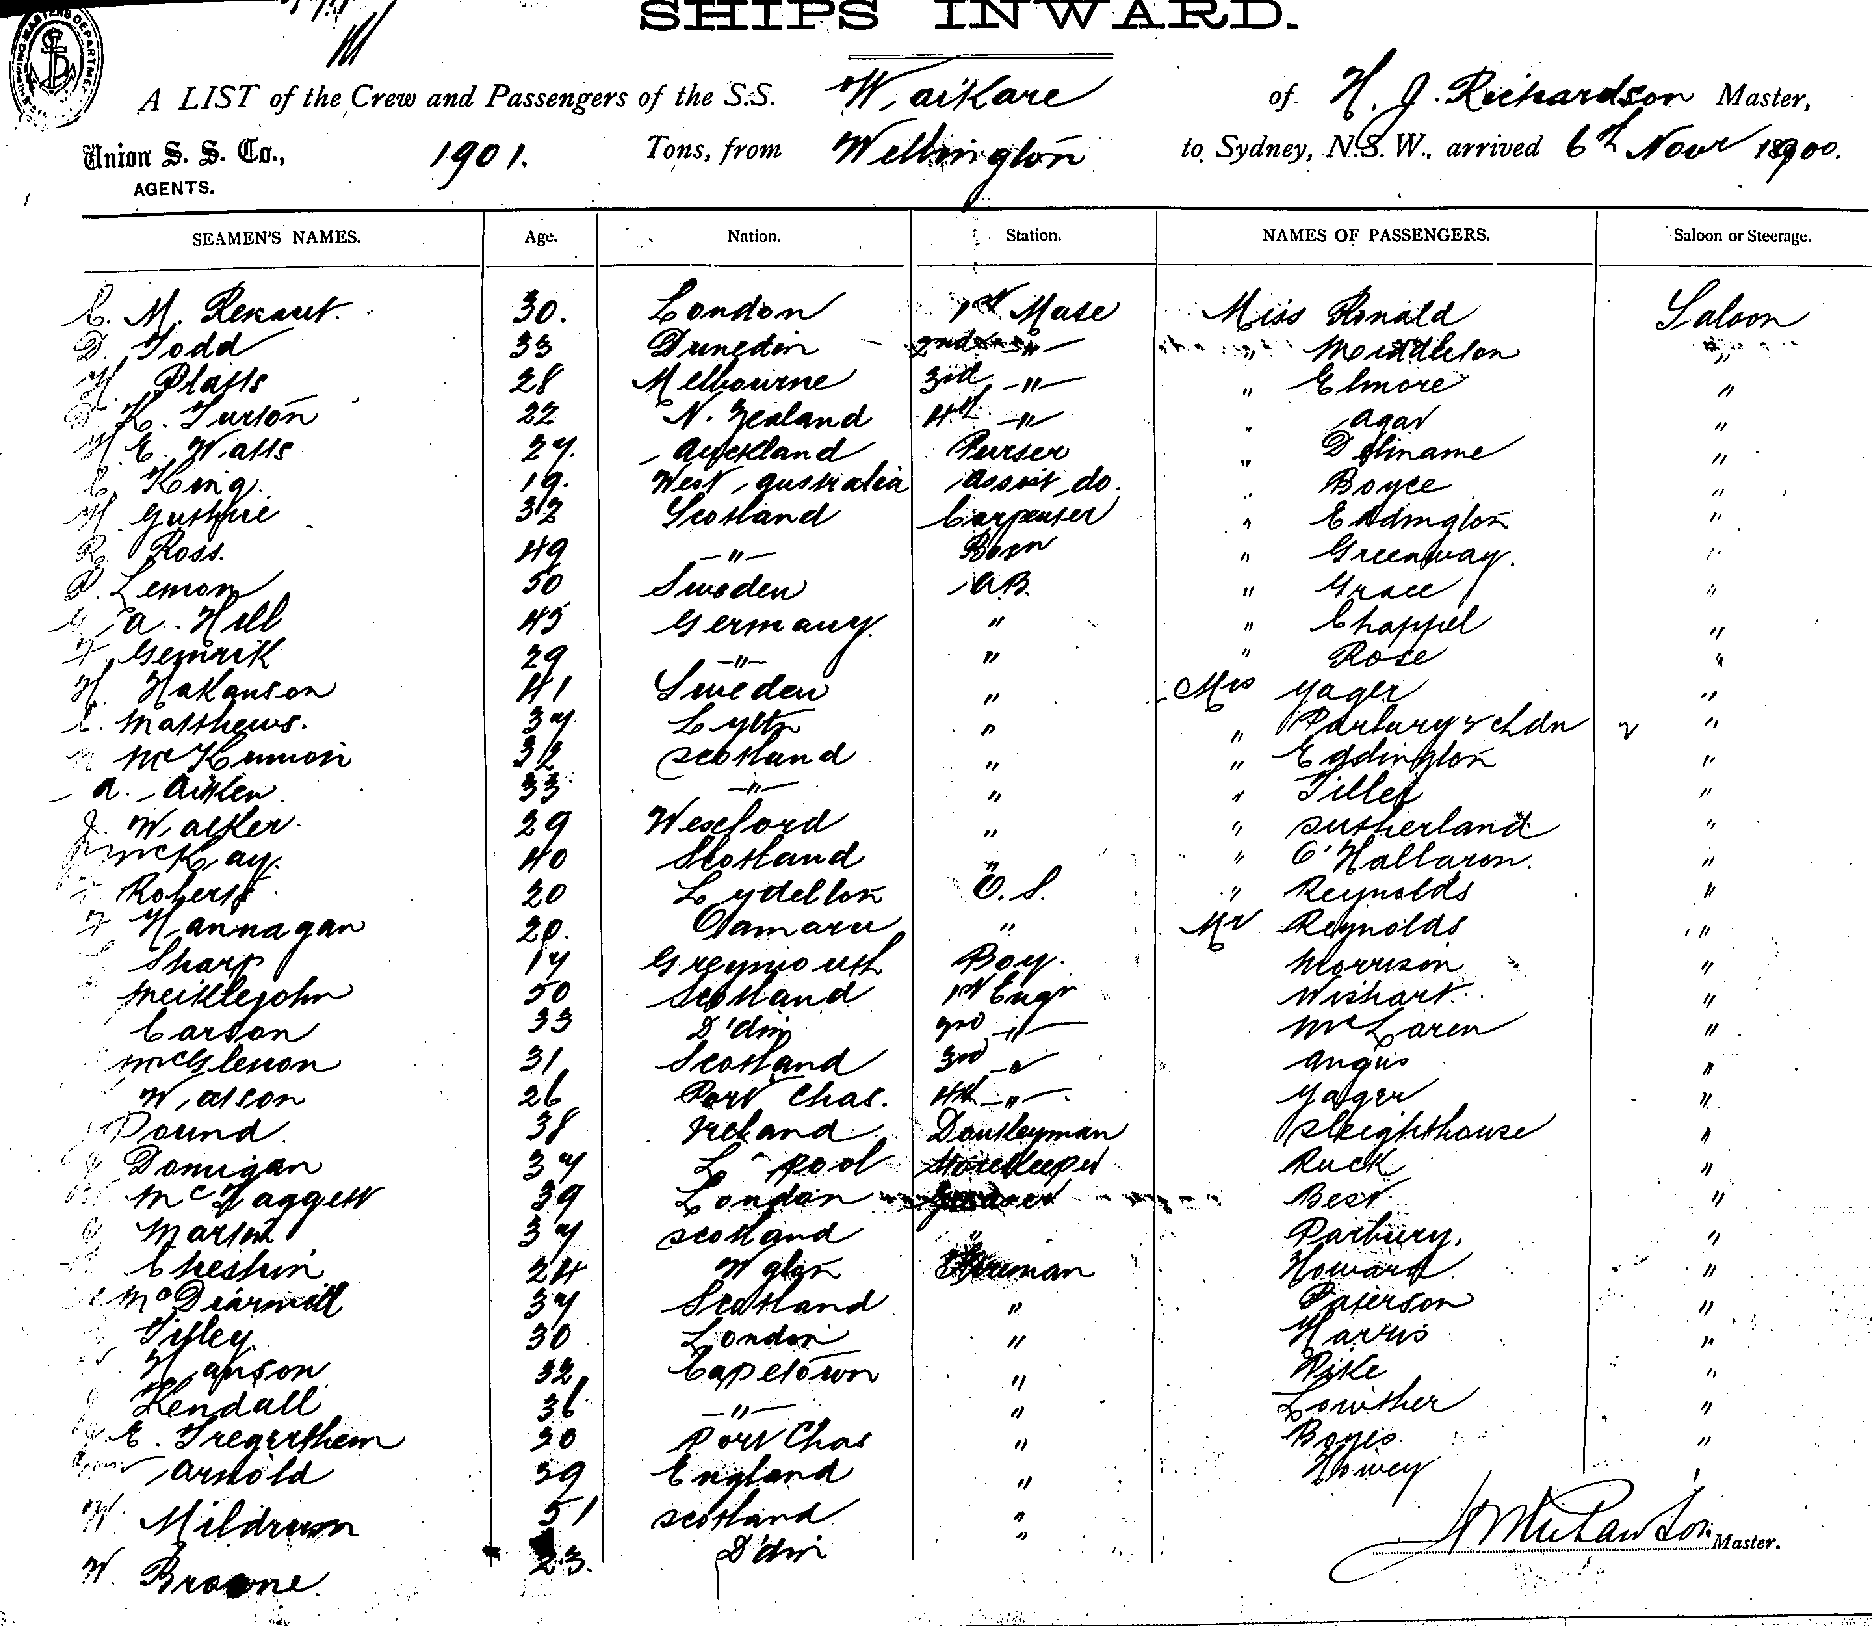 SHIPS INWARD.
A LIST of the Crew and Passengers of the S.S. Waikare of H. J. Richardson Master,
Union S. S. Co., 1901. Tons, from Wellington to Sydney, N.S.W., arrived 6th Novr 1900.
AGENTS.
SEAMEN'S NAMES. Age. Nation. Station. NAMES OF PASSENGERS. Saloon or Steerage.
C. M. Renaut. 30. London 1st Mate Miss Ronald Saloon
D. Todd 33 Dunedin 2nd -"- " Middleton "
H. Platts 28 Melbourne 3rd -"- " Elmore "
K. Turton 22 N. Zealand 4th -"- " Agar "
H. E. Watts 27. Auckland Purser "
C. King. 19. West Australia Assist do. " Boyce "
H. Guthrie 32 Scotland Carpenter " Eddington "
R. Ross. 49 -"- Bosn " Greenway. "
Lemon 50 Sweden AB. " Grace "
A. Hill 45 Germany. " " Chappel "
F 29 -"- " " Rose "
H. Hakanson 41 Sweden " Mrs Yager "
C. Matthews. 37 Lyttn " " Parbury & chdn 2 "
McKinnon 32 Scotland " " Eddington "
A. Aitken. 33 -"- " " Tilley "
J. Walker. 29 Wexford " " Sutherland "
J. McKay. 40 Scotland " " O'Hallaron. "
Roberts 20 O. S. " Reynolds "
F Hannagan 20. Oamaru " Mr Reynolds "
Sharp 17 Greymouth Boy. Morrison "
Meiklejohn 50 Scotland 1st Engr Wishart. "
Carson 33 D'din 2nd -"- McLaren "
McGlenon 31 Scotland 3rd -"- Angus "
Watson 26 Port Chas. 4th -"- Yager "
Pound. 38 Ireland Donkeyman Sleighthouse "
Donigan 37 L'pool Storekeeper Ruck "
McTaggett 39 London Greaser Best "
Martin 37 Scotland " Parbury. "
Cheshin 24 Wgton Fireman Howard "
McDiarmid 37 Scotland " Paterson "
Tilley 30 London " Harris "
Hanson 32 Capetown " Pike "
Kendall 36 -"- " Lowther "
E. Tregerthem 30 Port Chas " "
Arnold 39 England " Howey "
W. Mildrum 51 Scotland "
W. Browne. 23. D'din "
Master.